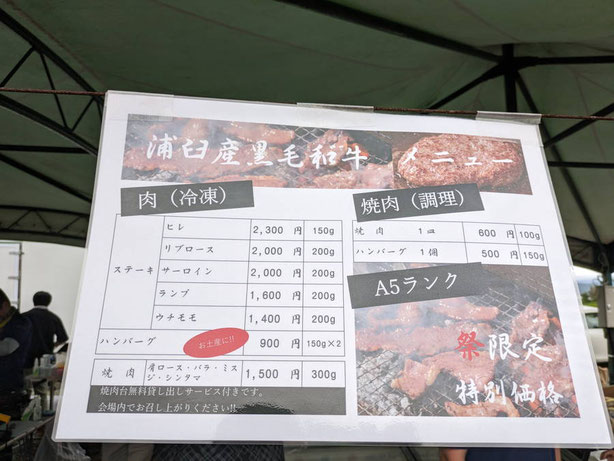 浦臼産黒毛和牛 メニュー
肉（冷凍）
ステーキ
ヒレ 2,300 円 150g
リブロース 2,000 円 200g
サーロイン 2,000 円 200g
ランプ 1,600 円 200g
ウチモモ 1,400 円 200g
ハンバーグ お土産に!! 900 円 150g×2
焼 肉 肩ロース・バラ・ミス
ジ・シンタマ 1,500 円 300g
焼肉台無料貸し出しサービス付きです。
会場内でお召し上がりください!!
焼肉（調理）
焼 肉 1皿 600 円 100g
ハンバーグ 1個 500 円 150g
A5ランク
祭限定
特別価格